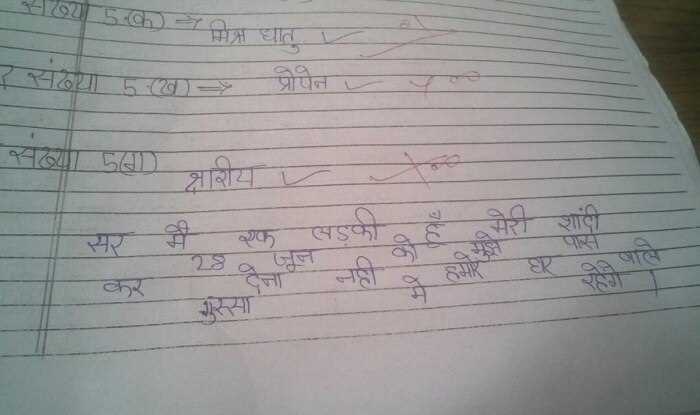 संख्या 5(क) → मिश्र धातु
संख्या 5(ख) → प्रोपेन
संख्या 5(ग)
क्षारीय
सर मै एक लड़की हूँ मेरी शादी
28 जून को है मुझे पास
कर देना नही हमारे घर वाले
गुस्सा मे रहेगे ।